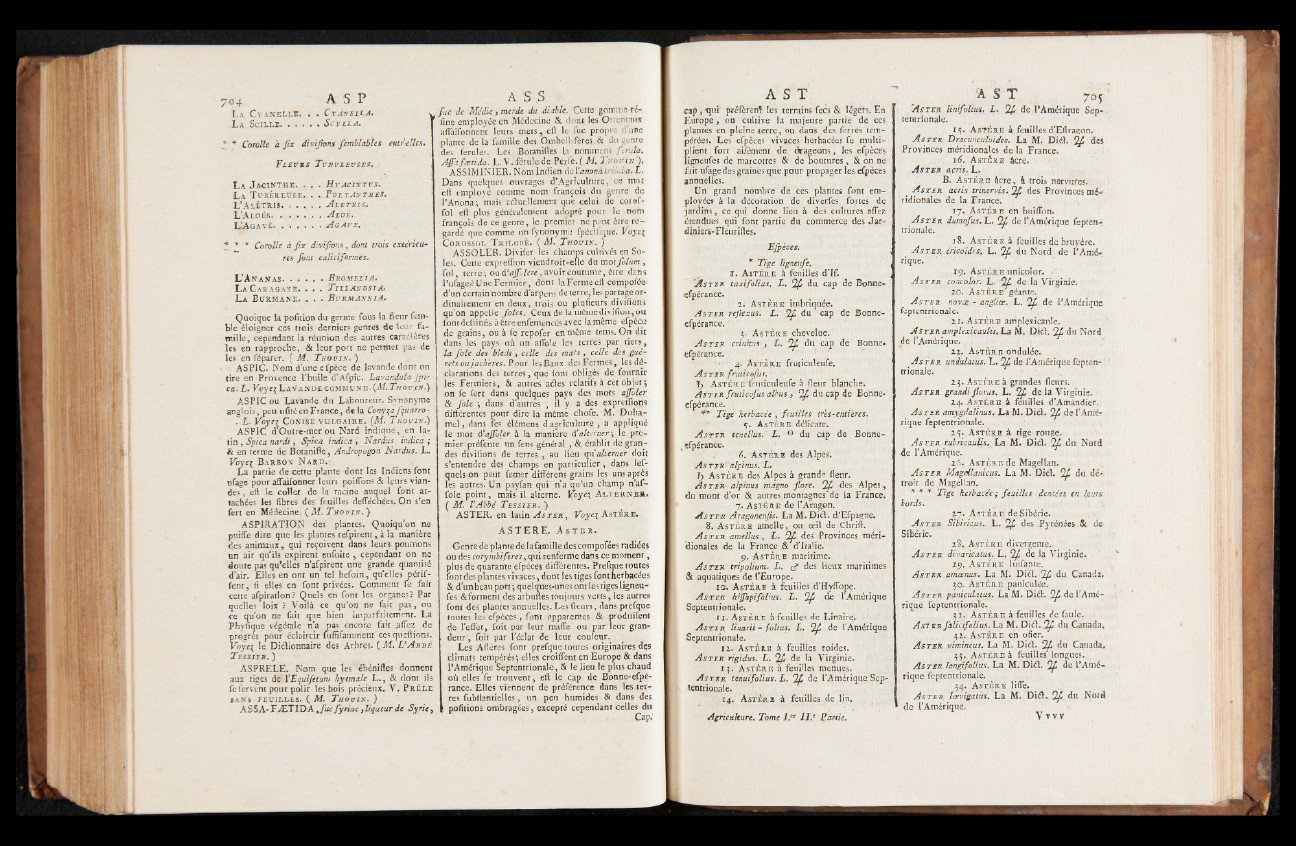 704 A S P
LA CYANELLE. . . CYANELLA.
LA SCILLE. . . . . . SCYLLA.
* * Corolle à six divisions semblables entr'elles.
FLEURS TUBULEUSES.
LA JACINTHE. . . . HYACINTUS.
LA TUBÉREUSE. . . POLYANTHES.
L'ALÉTRIS. . . . . . ALETRIS.
L'ALOÈS. . . . . . . ALOË.
L'AGAVÉ. . . . . . . AGAVE.
* * * Corolle à six divisions, dont trois extérieu-
res sont caliciformes.
L'ANANAS. . . . . . BROMELIA.
LA CARAGATE. . . . TILLANDSIA.
LA BURMANE. . . . BURMANNIA.
Quoique la position du germe sous la fleur sem-
ble éloigner ces trois derniers genres de leur fa-
mille, cependant la réunion des autres caractères
les en rapproche, & leur port ne permet pas de
les en séparer. ( M. THOUIN. )
ASPIC. Nom d'une espèce de lavande dont on
tire en Provence l'huile d'Aspic. Lavandula spi-
ca. L. Voyez LAVANDE COMMUNE. (M. THOUIN.)
ASPIC ou Lavande du Laboureur. Synonyme
anglois, peu usité en France, de la Conyza squarro-
. L. Voyez CONISE VULGAIRE. (M. THOUIN.)
ASPIC d'Outre-mer ou Nard indique, en la-
tin, Spica nardi, Spica indica, Nardus indica ;
& en terme de Botaniste, Andropogon Nardus. L.
Voyez BARBON NARD.
La partie de cette plante dont les Indiens font
usage pour assaisonner leurs poissons & leurs vian-
des, est le collet de la racine auquel sont at-
tachées les fibres des feuilles desséchées. On s'en
sert en Médecine. ( M. THOUIN. )
ASPIRATION des plantes. Quoiqu'on ne
puisse dire que les plantes respirent, à la manière
des animaux, qui reçoivent dans leurs poumons
un air qu'ils expirent ensuite, cependant on ne
doute pas qu'elles n'aspirent une grande quantité
d'air. Elles en ont un tel besoin, qu'elles péris-
sent, si elles en sont privées. Comment se fait
cette aspiration ? Quels en sont les organes ? Par
quelles loix ? Voilà ce qu'on ne sait pas, ou
ce qu'on ne sait que bien imparfaitement. La
Physique végétale n'a pas encore fait assez de
progrès pour éclaircir suffisamment ces questions.
Voyez le Dictionnaire des Arbres. ( M. L'ABBÉ
TESSIER. )
ASPRELE. Nom que les ébénistes donnent
aux tiges de l'Equisetum hyemale L., & dont ils
se servent pour polir les bois précieux. V. PRÊLE
SANS FEUILLES. ( M. THOUIN. )
ASSA-FÆTIDA, suc syriac, liqueur de Syrie,
A S S
suc de Médie, merde du diable. Cette gomme-ré-
sine employée en Médecine & dont les Orientaux
assaisonnent leurs mets, est le suc propre d'une
plante de la famille des Ombellifères & du genre
des ferules. Les Botanistes la nomment ferula.
Assa foetida. L. V. férule de Perse. ( M. THOUIN ).
ASSIMINIER. Nom Indien de l'anona triloba. L.
Dans quelques ouvrages d'Agriculture, ce mot
est employé comme nom françois du genre de
l'Anona ; mais actuellement que celui de coros-
sol est plus généralement adopté pour le nom
françois de ce genre, le premier ne peut être re-
gardé que comme un synonyme spécifique. Voyez
COROSSOL TRILOBÉ. ( M. THOUIN. )
ASSOLER. Diviser les champs cultivés en So-
les. Cette expression viendroit-elle du mot solum,
sol, terre ; ou d'assolere, avoir coutume, être dans
l'usage ? Une Fermier, dont la Ferme est composée
d'un certain nombre d'arpens de terre, les partage or-
dinairement en deux, trois ou plusieurs divisions
qu'on appelle soles. Ceux de la même division, ou
sont destinés à être ensemencés avec la même espèce
de grains, ou à se reposer en même tems. On dit
dans les pays où on assole les terres par tiers,
la sole des bleds, celle des mars, celle des gué-
rets ou jachères. Pour les Baux des Fermes, les dé-
clarations des terres, que sont obligés de fournir
les Fermiers, & autres actes relatifs à cet objet ;
on se sert dans quelques pays des mots assoler
& sole ; dans d'autres, il y a des expressions
différentes pour dire la même chose. M. Duha-
mel, dans ses élémens d'agriculture, a appliqué
le mot d'assoler à la manière d'alterner ; le pre-
mier présente un sens général, & établit de gran-
des divisions de terres, au lieu qu'alterner doit
s'entendre des champs en particulier, dans les-
quels on peut semer différens grains les uns après
les autres. Un paysan qui n'a qu'un champ n'as-
sole point, mais il alterne. Voyez ALTERNER.
( M. l'Abbé TESSIER. )
ASTER, en latin ASTER, Voyez ASTÈRE.
ASTERE. ASTER.
Genre de plante de la famille des composées radiées
ou des corymbifères, qui renferme dans ce moment,
plus de quarante espèces différentes. Presque toutes
sont des plantes vivaces, dont les tiges sont herbacées
& d'un beau port ; quelques-unes ont les tiges ligneu-
ses & forment des arbustes toujours verts, les autres
sont des plantes annuelles. Les fleurs, dans presque
toutes les espèces, sont apparentes & produisent
de l'effet, soit par leur masse ou par leur gran-
deur, soit par l'éclat de leur couleur.
Les Astères sont presque toutes originaires des
climats tempérés ; elles croissent en Europe & dans
l'Amérique Septentrionale, & le lieu le plus chaud
où elles se trouvent, est le cap de Bonne-espé-
rance. Elles viennent de préférence dans les ter-
res substantielles, un peu humides & dans des
positions ombragées, excepté cependant celles du
Cap.
A S T
cap, qui préfèrent les terrains secs & légers. En
Europe, on cultive la majeure partie de ces
plantes en pleine terre, ou dans des serres tem-
pérées. Les espèces vivaces herbacées se multi-
plient fort aisément de drageons, les espèces
ligneuses de marcottes & de boutures, & on ne
fait usage des graines que pour propager les espèces
annuelles.
Un grand nombre de ces plantes sont em-
ployées à la décoration de diverses sortes de
jardins, ce qui donne lieu à des cultures assez
étendues qui font partie du commerce des Jar-
diniers-Fleuristes.
Espèces.
* Tige ligneuse.
1. ASTÈRE à feuilles d'If.
ASTER taxifolius. L. ♃ du cap de Bonne-
espérance.
2. ASTÈRE imbriquée.
ASTER reflexus. L. ♃ du cap de Bonne-
espérance.
3. ASTÈRE chevelue.
ASTER crinitus, L. ♃ du cap de Bonne-
espérance.
4. ASTÈRE fruticuleuse.
ASTER fruticosus.
♄ ASTÈRE fruticuleuse à fleur blanche.
ASTER fruticosus albus, ♃ du cap de Bonne-
espérance.
** Tige herbacée, feuilles très-entières.
5. ASTÈRE délicate.
ASTER tenellus. L. ☉ du cap de Bonne-
espérance.
6. ASTÈRE des Alpes.
ASTER alpinus. L.
♄ ASTÈRE des Alpes à grande fleur.
ASTER alpinus magno flore. ♃ des Alpes,
du mont d'or & autres montagnes de la France.
7. ASTÈRE de l'Aragon.
ASTER Aragonensis. La M. Dict. d'Espagne.
8. ASTÈRE amelle, ou œil de Christ.
ASTER amellus, L. ♃ des Provinces méri-
dionales de la France & d'Italie.
9. ASTÈRE maritime.
ASTER tripolium. L. ♂ des lieux maritimes
& aquatiques de l'Europe.
10. ASTÈRE à feuilles d'Hyssope.
ASTER hissopifolius. L. ♃ de l'Amérique
Septentrionale.
11. ASTÈRE à feuilles de Linaire.
ASTER linarii-folius. L. ♃ de l'Amérique
Septentrionale.
12. ASTÈRE à feuilles roides.
ASTER rigidus. L. ♃ de la Virginie.
13. ASTÈRE à feuilles menues.
ASTER tenuifolius. L. ♃ de l'Amérique Sep-
tentrionale.
14. ASTÈRE à feuilles de lin.
Agriculture. Tome I.er II.e Partie.
A S T 705
ASTER linifolius. L. ♃ de l'Amérique Sep-
tentrionale.
15. ASTÈRE à feuilles d'Estragon.
ASTER Dracunculoides. La M. Dict. ♃ des
Provinces méridionales de la France.
16. ASTÈRE âcre.
ASTER acris. L.
B. ASTÈRE âcre, à trois nervures.
ASTER acris trinervis. ♃ des Provinces mé-
ridionales de la France.
17. ASTÈRE en buisson.
ASTER dumosus. L. ♃ de l'Amérique septen-
trionale.
18. ASTÈRE à feuilles de bruyère.
ASTER ericoides. L. ♃ du Nord de l'Amé-
rique.
19. ASTÈRE unicolor.
ASTER concolor. L. ♃ de la Virginie.
20. ASTÈRE géante.
ASTER novæ-angliæ. L. ♃ de l'Amérique
septentrionale.
21. ASTÈRE amplexicaule.
ASTER amplexicaulis. La M. Dict. ♃ du Nord
de l'Amérique.
22. ASTÈRE ondulée.
ASTER undulatus. L. ♃ de l'Amérique septen-
trionale.
23. ASTÈRE à grandes fleurs.
ASTER grandiflorus. L. ♃ de la Virginie.
24. ASTÈRE à feuilles d'Amandier.
ASTER amygdalinus. La M. Dict. ♃ de l'Amé-
rique septentrionale.
25. ASTÈRE à tige rouge.
ASTER rubricaulis. La M. Dict. ♃ du Nord
de l'Amérique.
26. ASTÈRE de Magellan.
ASTER Magellanicus. La M. Dict. ♃ du dé-
troit de Magellan.
* * * Tige herbacée ; feuilles dentées en leurs
bords.
27. ASTÈRE de Sibérie.
ASTER Sibiricus. L. ♃ des Pyrénées & de
Sibérie.
28. ASTÈRE divergente.
ASTER divaricatus. L. ♃ de la Virginie.
29. ASTÈRE luisante.
ASTER amœnus. La M. Dict. ♃ du Canada.
30. ASTÈRE paniculée.
ASTER paniculatus. La M. Dict. ♃ de l'Amé-
rique septentrionale.
31. ASTÈRE à feuilles de saule.
ASTER salicifolius. La M. Dict. ♃ du Canada.
32. ASTÈRE en osier.
ASTER vimineus. La M. Dict. ♃ du Canada.
33. ASTÈRE à feuilles longues.
ASTER longifolius. La M. Dict. ♃ de l'Amé-
rique septentrionale.
34. ASTÈRE lisse.
ASTER lævigatus. La M. Dict. ♃ du Nord
de l'Amérique.
V v v v